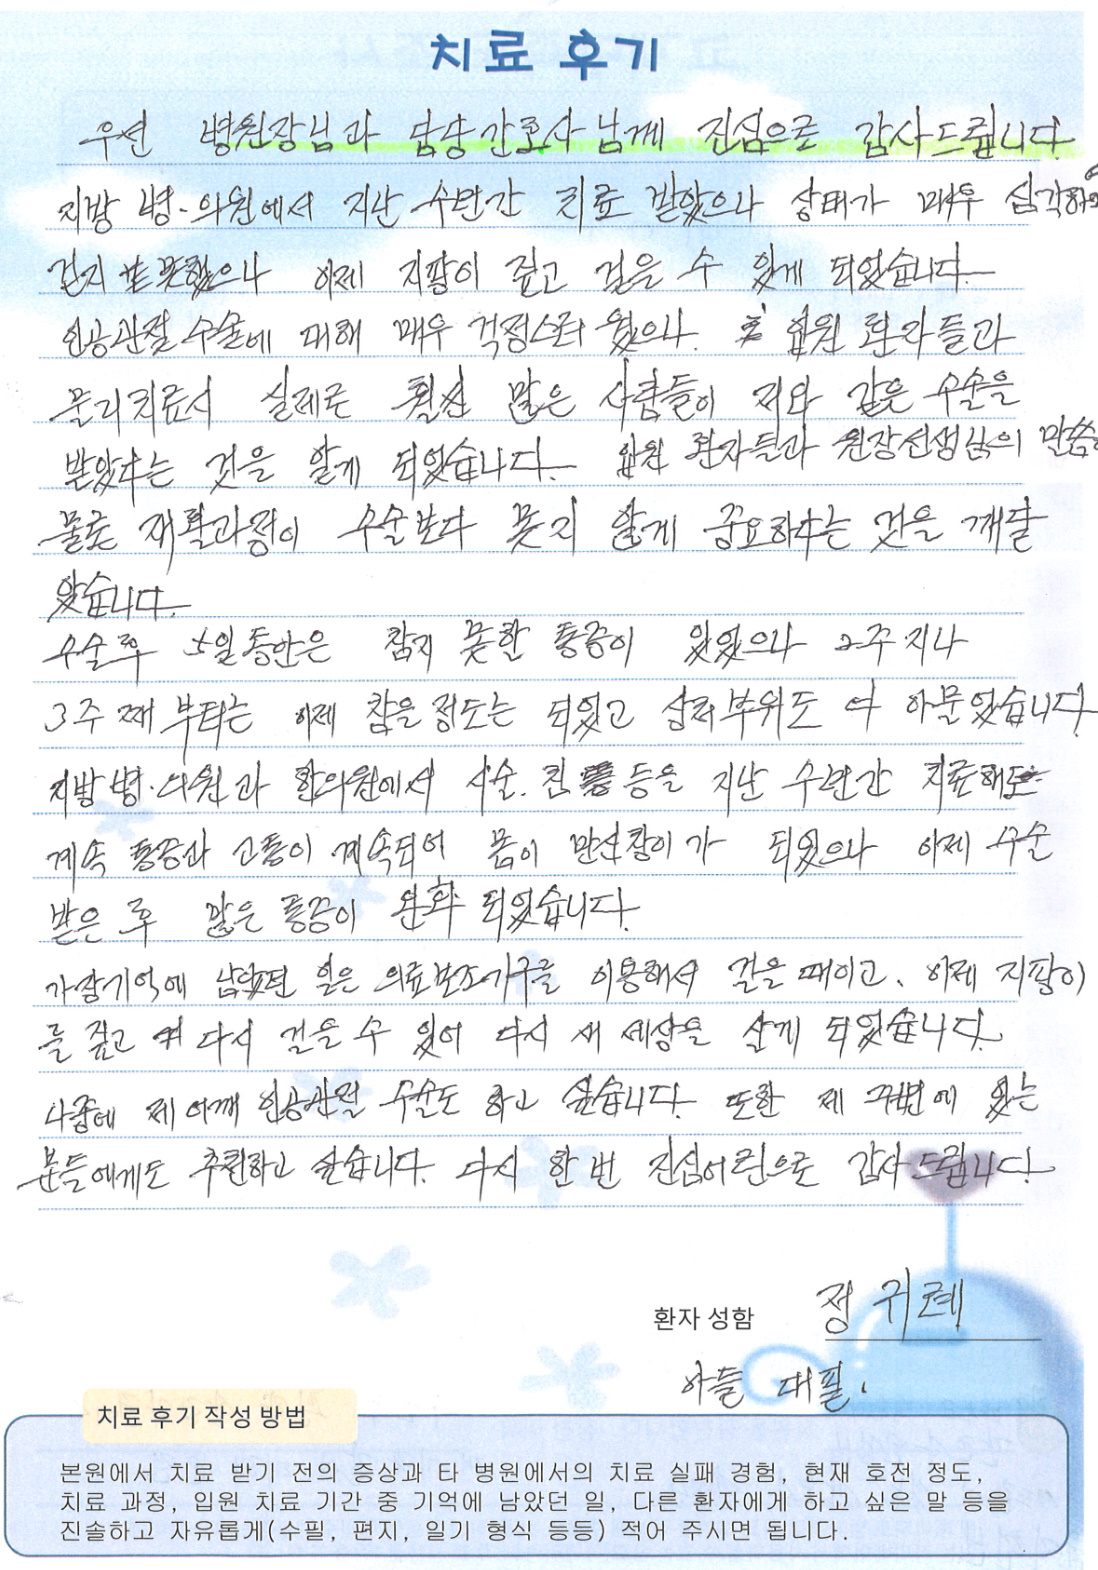 치료 후기
우선 병원장님과 담당간호사님께 진심으로 감사드립니다.
지방 병·의원에서 지난 수년간 치료 받았으나 상태가 매우 심각하여
걷지 못했으나 이제 지팡이 짚고 걸을 수 있게 되었습니다.
인공관절 수술에 대해 매우 걱정스러웠으나. 입원 환자들과
물리치료서 실제로 훨씬 많은 사람들이 저와 같은 수술을
받았다는 것을 알게 되었습니다. 입원 환자들과 원장선생님의 말씀
물론 재활과정이 수술보다 못지 않게 중요하다는 것을 깨달
았습니다.
수술후 5일동안은 참지 못한 통증이 있었으나 2주 지나
3주 째 부터는 이제 참을 정도는 되었고 상처부위도 아물었습니다.
지방 병·의원과 한의원에서 시술. 침 등을 지난 수년간 치료해도
계속 통증과 고통이 계속되어 몸이 만신창이가 되었으나 이제 수술
받은 후 많은 통증이 완화 되었습니다.
가장기억에 남았던 일은 의료보조기구를 이용해서 걸을 때이고, 이제 지팡이
를 짚고 다시 걸을 수 있어 다시 새 세상을 살게 되었습니다.
나중에 제 어깨 인공관절 수술도 하고 싶습니다. 또한 제 주변에 있는
분들에게도 추천하고 싶습니다. 다시 한 번 진심어린으로 감사드립니다.
환자 성함 정귀례
아들 대필.
치료 후기 작성 방법
본원에서 치료 받기 전의 증상과 타 병원에서의 치료 실패 경험, 현재 호전 정도,
치료 과정, 입원 치료 기간 중 기억에 남았던 일, 다른 환자에게 하고 싶은 말 등을
진솔하고 자유롭게(수필, 편지, 일기 형식 등등) 적어 주시면 됩니다.